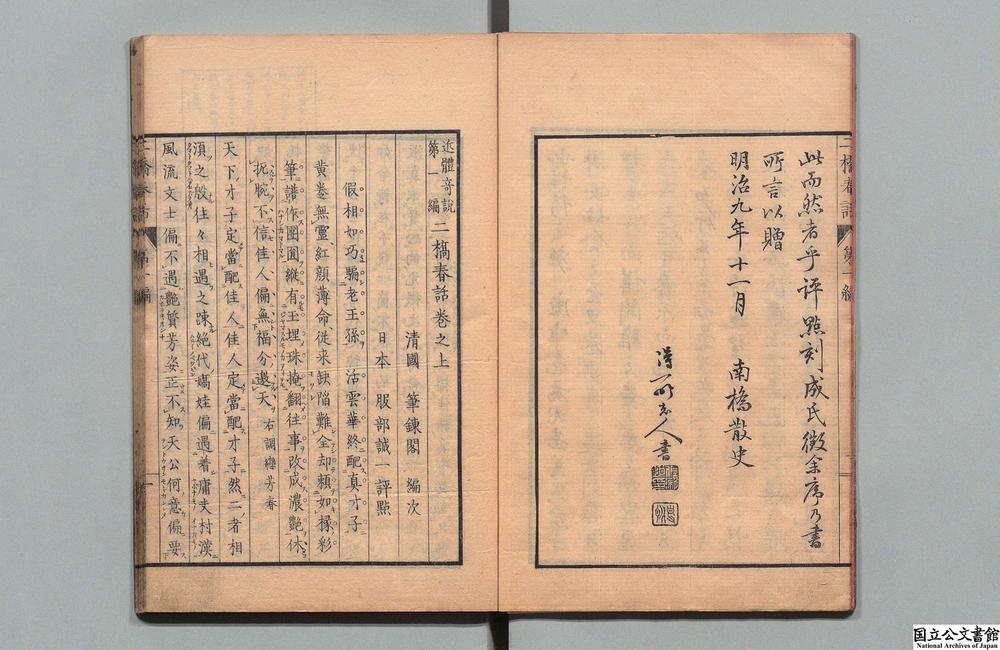 此而然者乎評點刻成氏徵余序乃書
所言以贈
明治九年十一月 南橋散史
二橋春話 第一編
近體奇說
第一編
二橋春話卷之上
清國 筆鍊閣 編次
日本 服部誠一評點
假相如巧騙老王孫 活雲華終配真才子
黃卷無靈紅顏薄命從來缺陷難全却賴如椽彩
筆譜作團圓縱有玉埋珠掩翻往事改成濃艷休
扼腕不信佳人偏無福分邀天 右調戀芳春
天下才子定當配佳人佳人定當配才子然二者相
湏之殷往々相遇之疎絕代嬌娃偏遇着庸夫村漢
風流文士偏不遇艷質芳姿正不知天公何意偏要
国立公文書館
National Archives of Japan